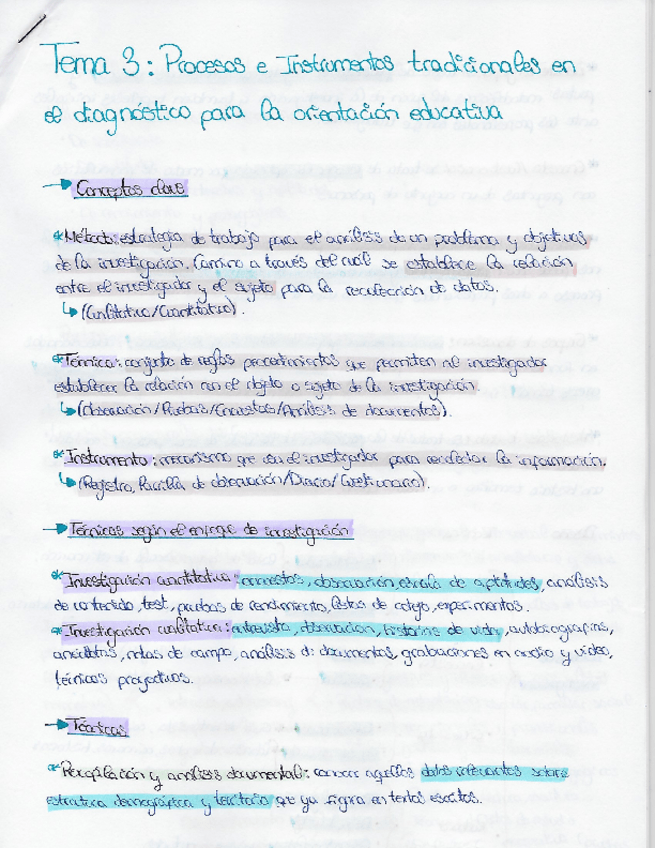 Tema 3: Procesos e Instrumentos tradicionales en
el diagnóstico para la orientación educativa
→ Conceptos clave
* Método: estrategia de trabajo para el análisis de un problema y objetivos
de la investigación. Camino a través del cual se establece la relación
entre el investigador y el sujeto para la recolección de datos.
↳ (Cualitativo/Cuantitativo).
* Técnica: conjunto de reglas procedimientos que permiten al investigador
establecer la relación con el objeto o sujeto de la investigación.
↳ (Observación/Pruebas/Encuestas/Análisis de documentos).
* Instrumento: mecanismo que usa el investigador para recolectar la información.
↳ (Registro, Parrilla de observación/Diario/Cuestionario).
→ Técnicas según el enfoque de investigación
* Investigación cuantitativa: encuestas, observación, escala de aptitudes, análisis
de contenido, test, pruebas de rendimiento, listas de cotejo, experimentos.
* Investigación cualitativa: entrevista, observación, historias de vida, autobiografías,
anécdotas, notas de campo, análisis de documentos, grabaciones en audio y video,
técnicas proyectivas.
→ Técnicas
* Recopilación y análisis documental: conocer aquellos datos relevantes sobre
estructura demográfica y territorio que ya figura en textos escritos.